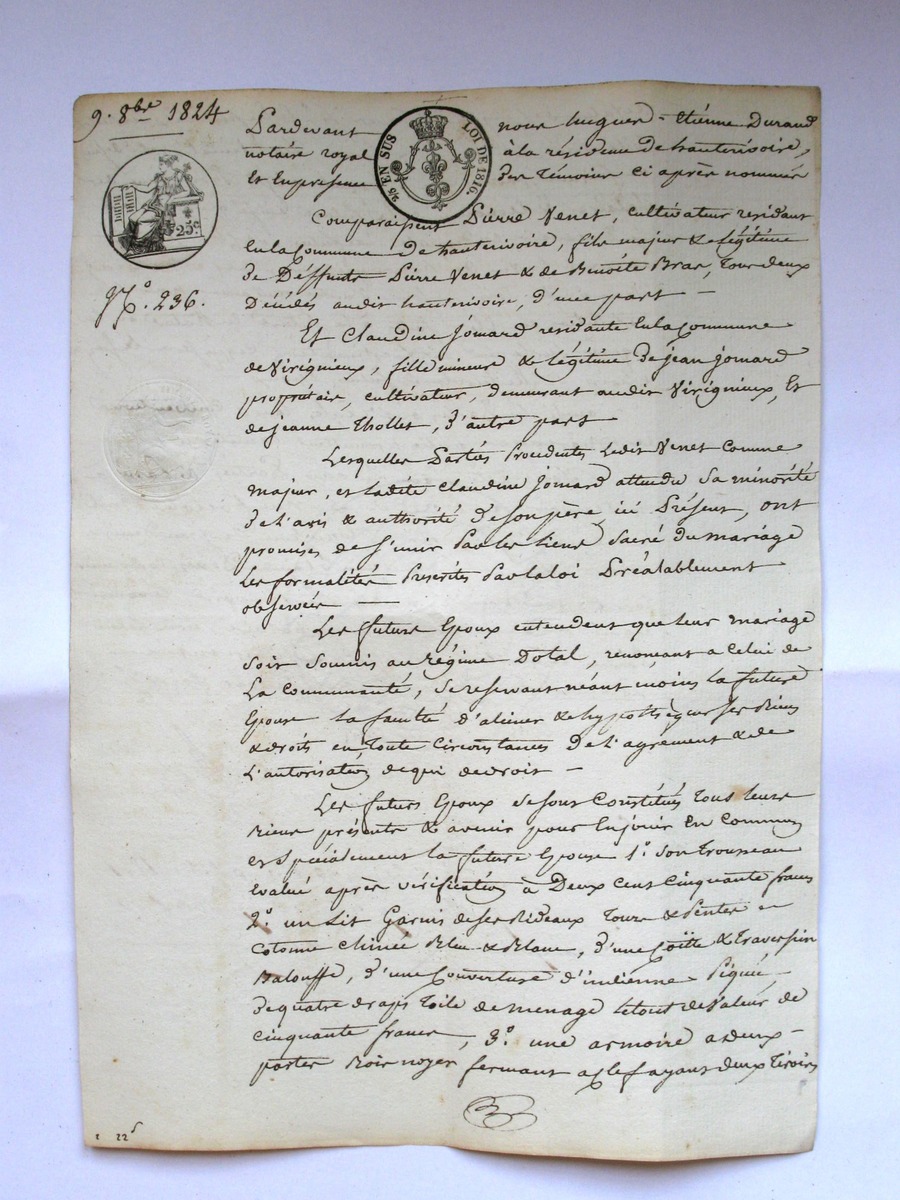 9. 8bre 1824
Pardevant nous hugues-Etiénne Durand
notaire royal à la résidence de hauterivoire,
Et En presence des Témoins ci après nommés
2/5 EN SUS
LOI DE 1816.
25c
N.° 236.
Comparaissent Pierre Venet, cultivateur residant
En la Commune de hauterivoire, fils majeur & légitime
de Deffunts Pierre Venet & de Benoîte Bras, Tous deux
Décédés audit hauterivoire, d'une part —
Et Claudine Jomard residante En la Commune
de Virignieux, fille mineure & légitime de jean jomard
propriétaire, cultivateur, demeurant audit Virignieux, Et
de jeanne Thollet, d'autre part
Lesquelles Parties Procedentes Ledit Venet Comme
majeur, et ladite Claudine Jomard attendu Sa minorité
de l'avis & authorité De son père ici Présent, ont
promises de S'unir Par les liens Sacré du mariage
Les formalités Prescrites Par la loi Préalablement
observées —
Les futurs Epoux entendent que leur mariage
Soit Soumis au régime Dotal, renonçant a Celui de
La Communauté, Se reservant néant moins la future
Epouse la faculté d'aliéner & hypothéquer Ses Biens
& droits en Toute Circonstances De l'agrement & de
L'autorisation de qui de droit —
Les futurs Epoux Se sont Constitués Tous leurs
Biens présents & avenir pour En jouir En Commun
et Spécialement la future Epouse 1.° Son Trousseau
Evalué après vérification à Deux cent Cinquante francs
2.° un Lit Garnis de ses Rideaux Tours & Pentes en
Cotonne Chinée Bleu & Blanc, d'une Coëtte & Traversin
Balouffe, d'une Couverture d'indienne Piquée
de quatre draps Toile de menage le tout de Valeur de
Cinquante francs, 3.° une armoire a deux —
portes Bois noyer fermant a clef ayant deux Tiroirs